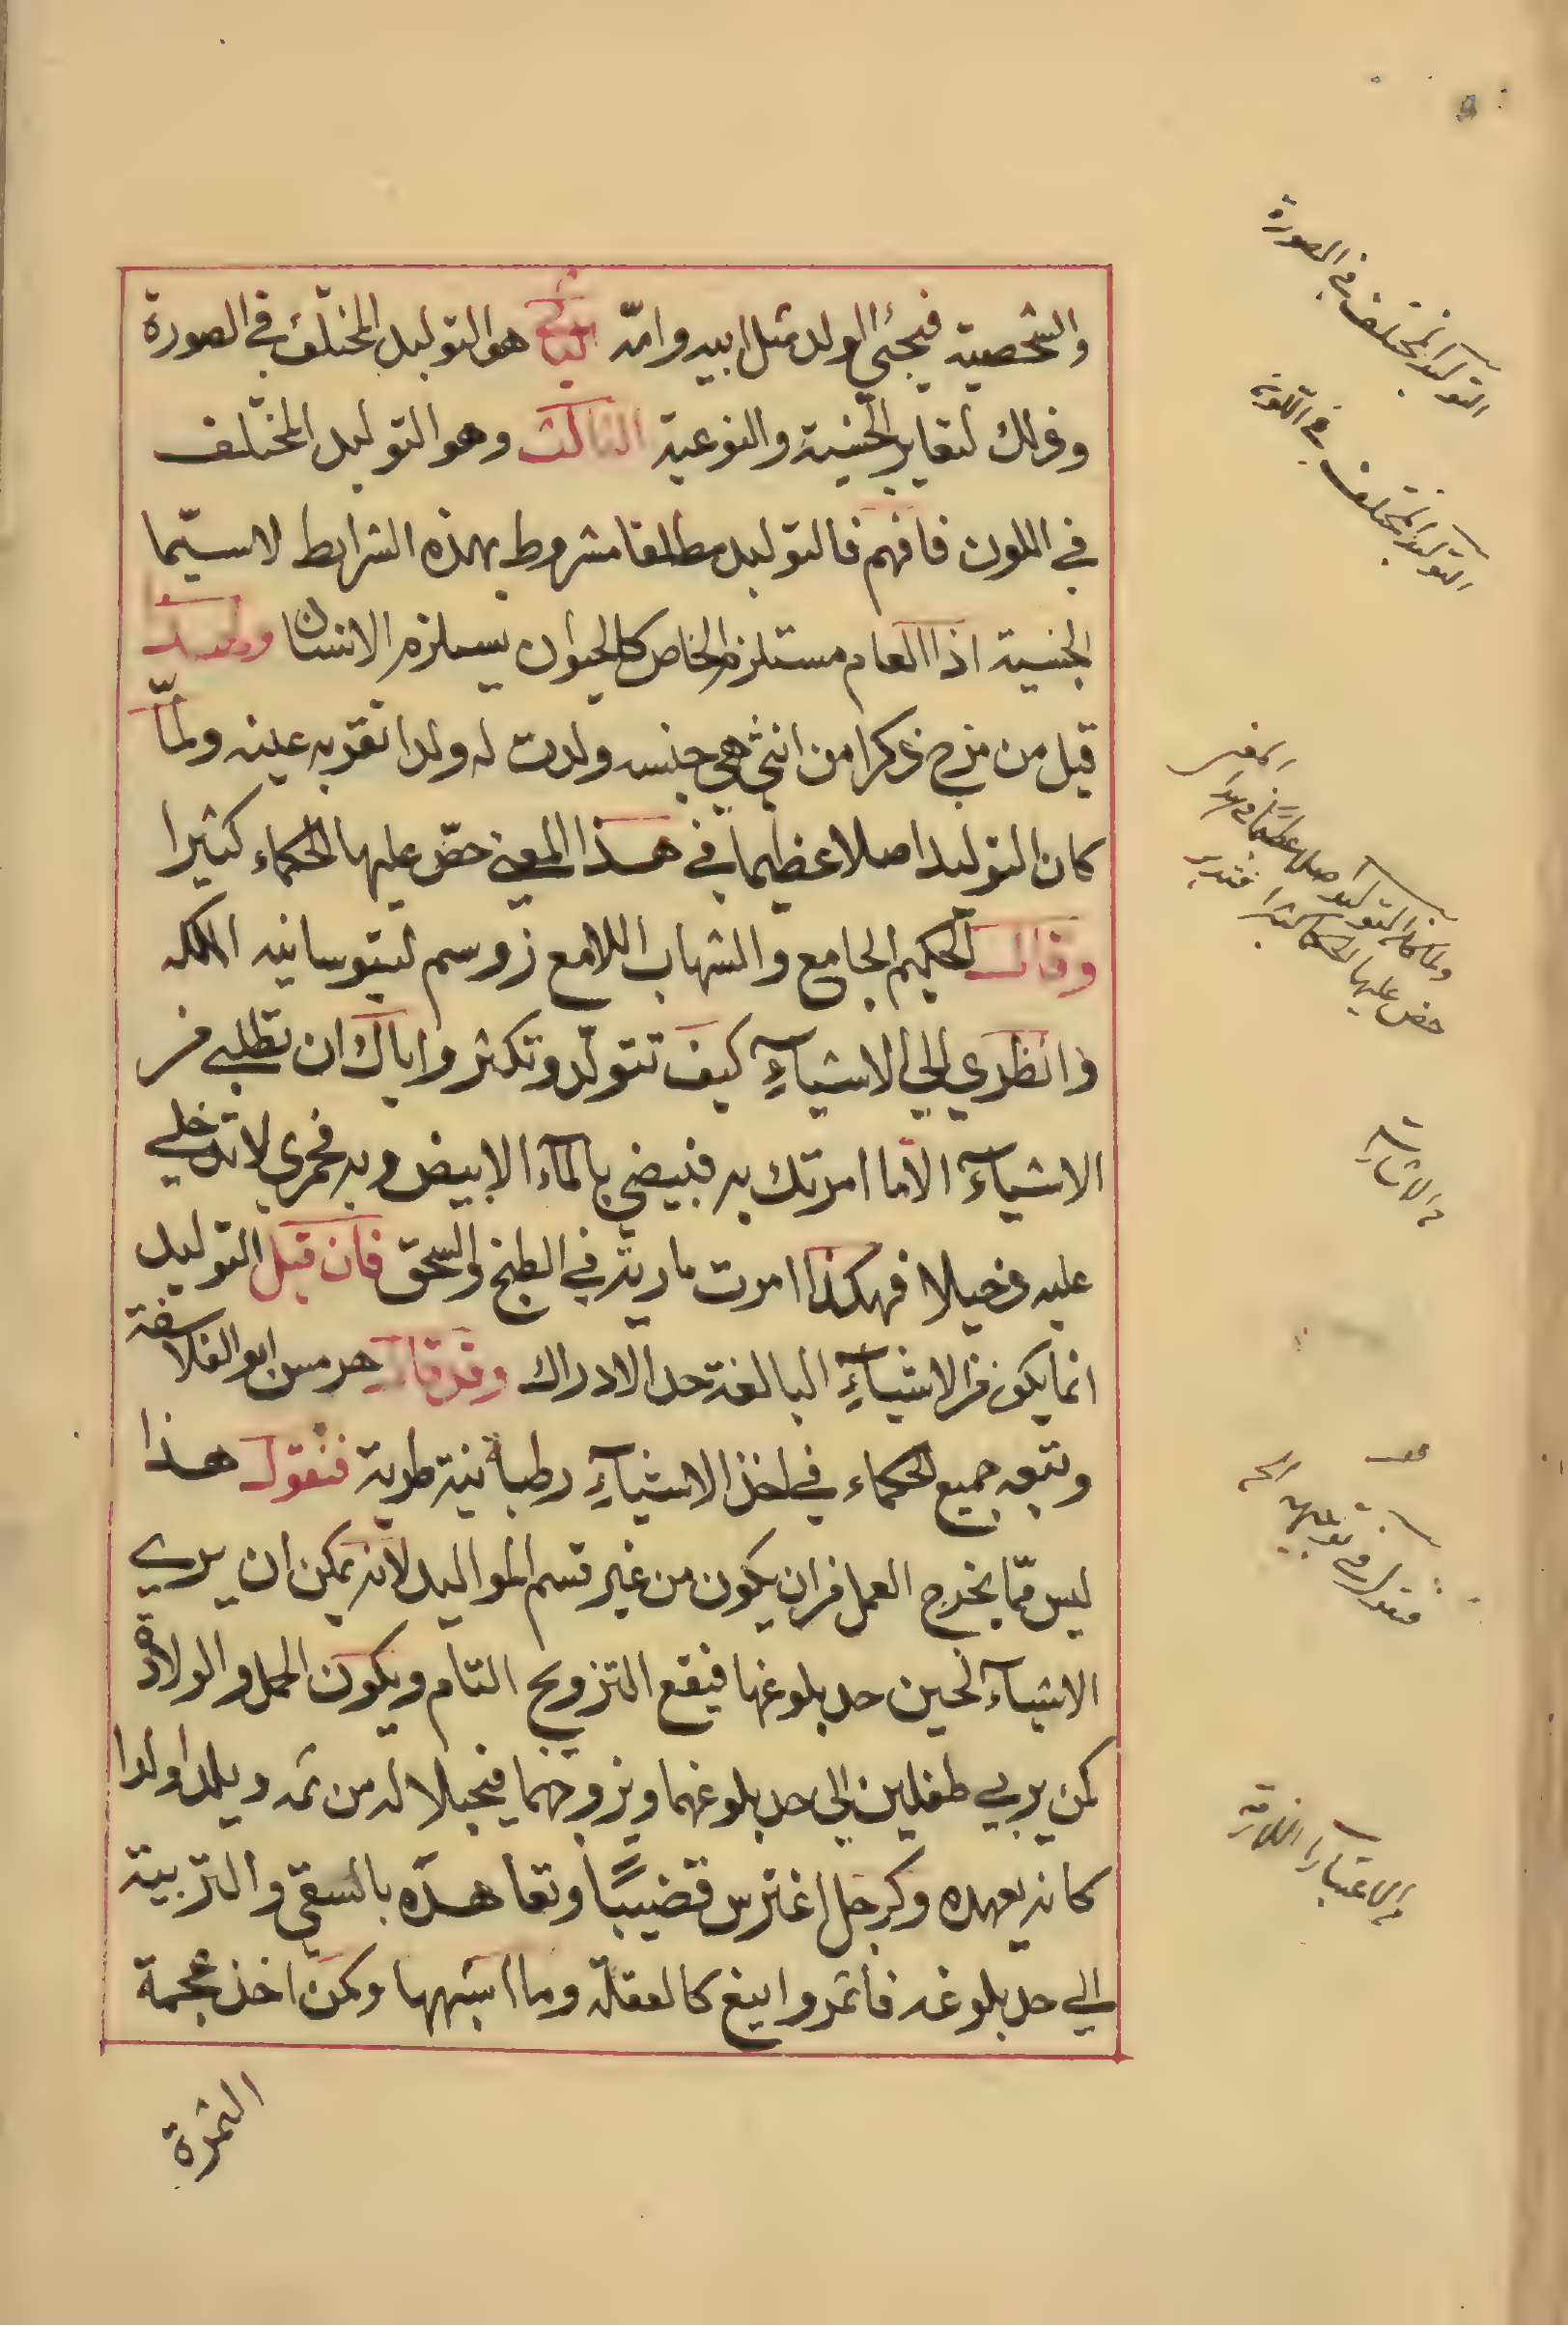 والشخصية فيجئ الولد مثل ابيه وامه الثاني هو التوليد المختلف في الصورة
وذلك لتغاير الجنسية والنوعية الثالث وهو التوليد المختلف
في اللون فافهم فالتوليد مطلقا مشروط بهذه الشرايط لاسيّما
الجنسية اذ العام مستلزم الخاص كالحيوان يستلزم الانسان ولهذا
قيل من مزج ذكرا من انثى هي جنسه ولدت له ولدا تقر به عينه ولمّا
كان التوليد اصلا عظيما في هذا المعنى حضّ عليها الحكماء كثيرا
وقال الحكيم الجامع والشهاب اللامع زوسم لتيوسانيه الملكه
وانظري الى الاشيآءِ كيف تتولّد وتكثر واياك ان تطلبي من
الاشيآء الا ما امرتك به فبيضي بالمآء الابيض وبه فحمري لا تدخلي
عليه دخيلا فهكذا امرت مارية في الطبخ والسحق فان قيل التوليد
انما يكون من الاشيآءِ البالغة حد الادراك وقد قال هرمس ابو الفلاسفة
وتبعه جميع الحكماء في اخذ الاشيآءِ رطبة نية طرية فنقول هذا
ليس ممّا يخرج العمل من ان يكون من غير قسم المواليد لانه يمكن ان يربي
الاشيآء لحين حد بلوغها فيقع التزويج التام ويكون الحمل والولادة
كمن يربي طفلين الى حد بلوغهما ويزوجهما فيحبلا له من ثمه ويلدا ولدا
كانه يعهده وكرجل اغترس قضيبًا وتعاهده بالسقى والتربية
الي حد بلوغه فاثمر واينع كالعقلة وما اشبهها وكمن اخذ عجمة
الثمرة
التوليد المختلف في الصورة
التوليد المختلف في اللون
ولما كان التوليد اصلا عظيما في هذا المعنى
حض عليها الحكما كثيرا فتدبر